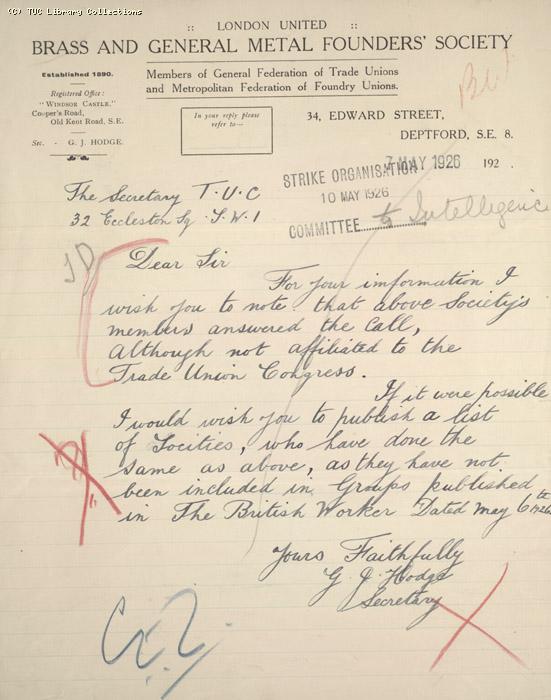 (C) TUC Library Collections
:: LONDON UNITED ::
BRASS AND GENERAL METAL FOUNDERS' SOCIETY
Established 1890.
Registered Office:
"WINDSOR CASTLE,"
Cooper's Road,
Old Kent Road, S.E.
Sec. - G. J. HODGE.
Members of General Federation of Trade Unions
and Metropolitan Federation of Foundry Unions.
In your reply please
refer to—
34, EDWARD STREET,
DEPTFORD, S.E. 8.
7 MAY 1926 192 .
STRIKE ORGANISATION
10 MAY 1926
COMMITTEE
to Intelligence
The Secretary T.U.C
32 Eccleston Sq. S.W.1
Dear Sir
For your imformation I
wish you to note that above Society's
members answered the Call,
Although not affiliated to the
Trade Union Congress.
If it were possible
I would wish you to publish a list
of Socities, who have done the
same as above, as they have not
been included in Groups published
in The British Worker Dated May 6th 1926
Yours Faithfully
G J Hodge
Secretary